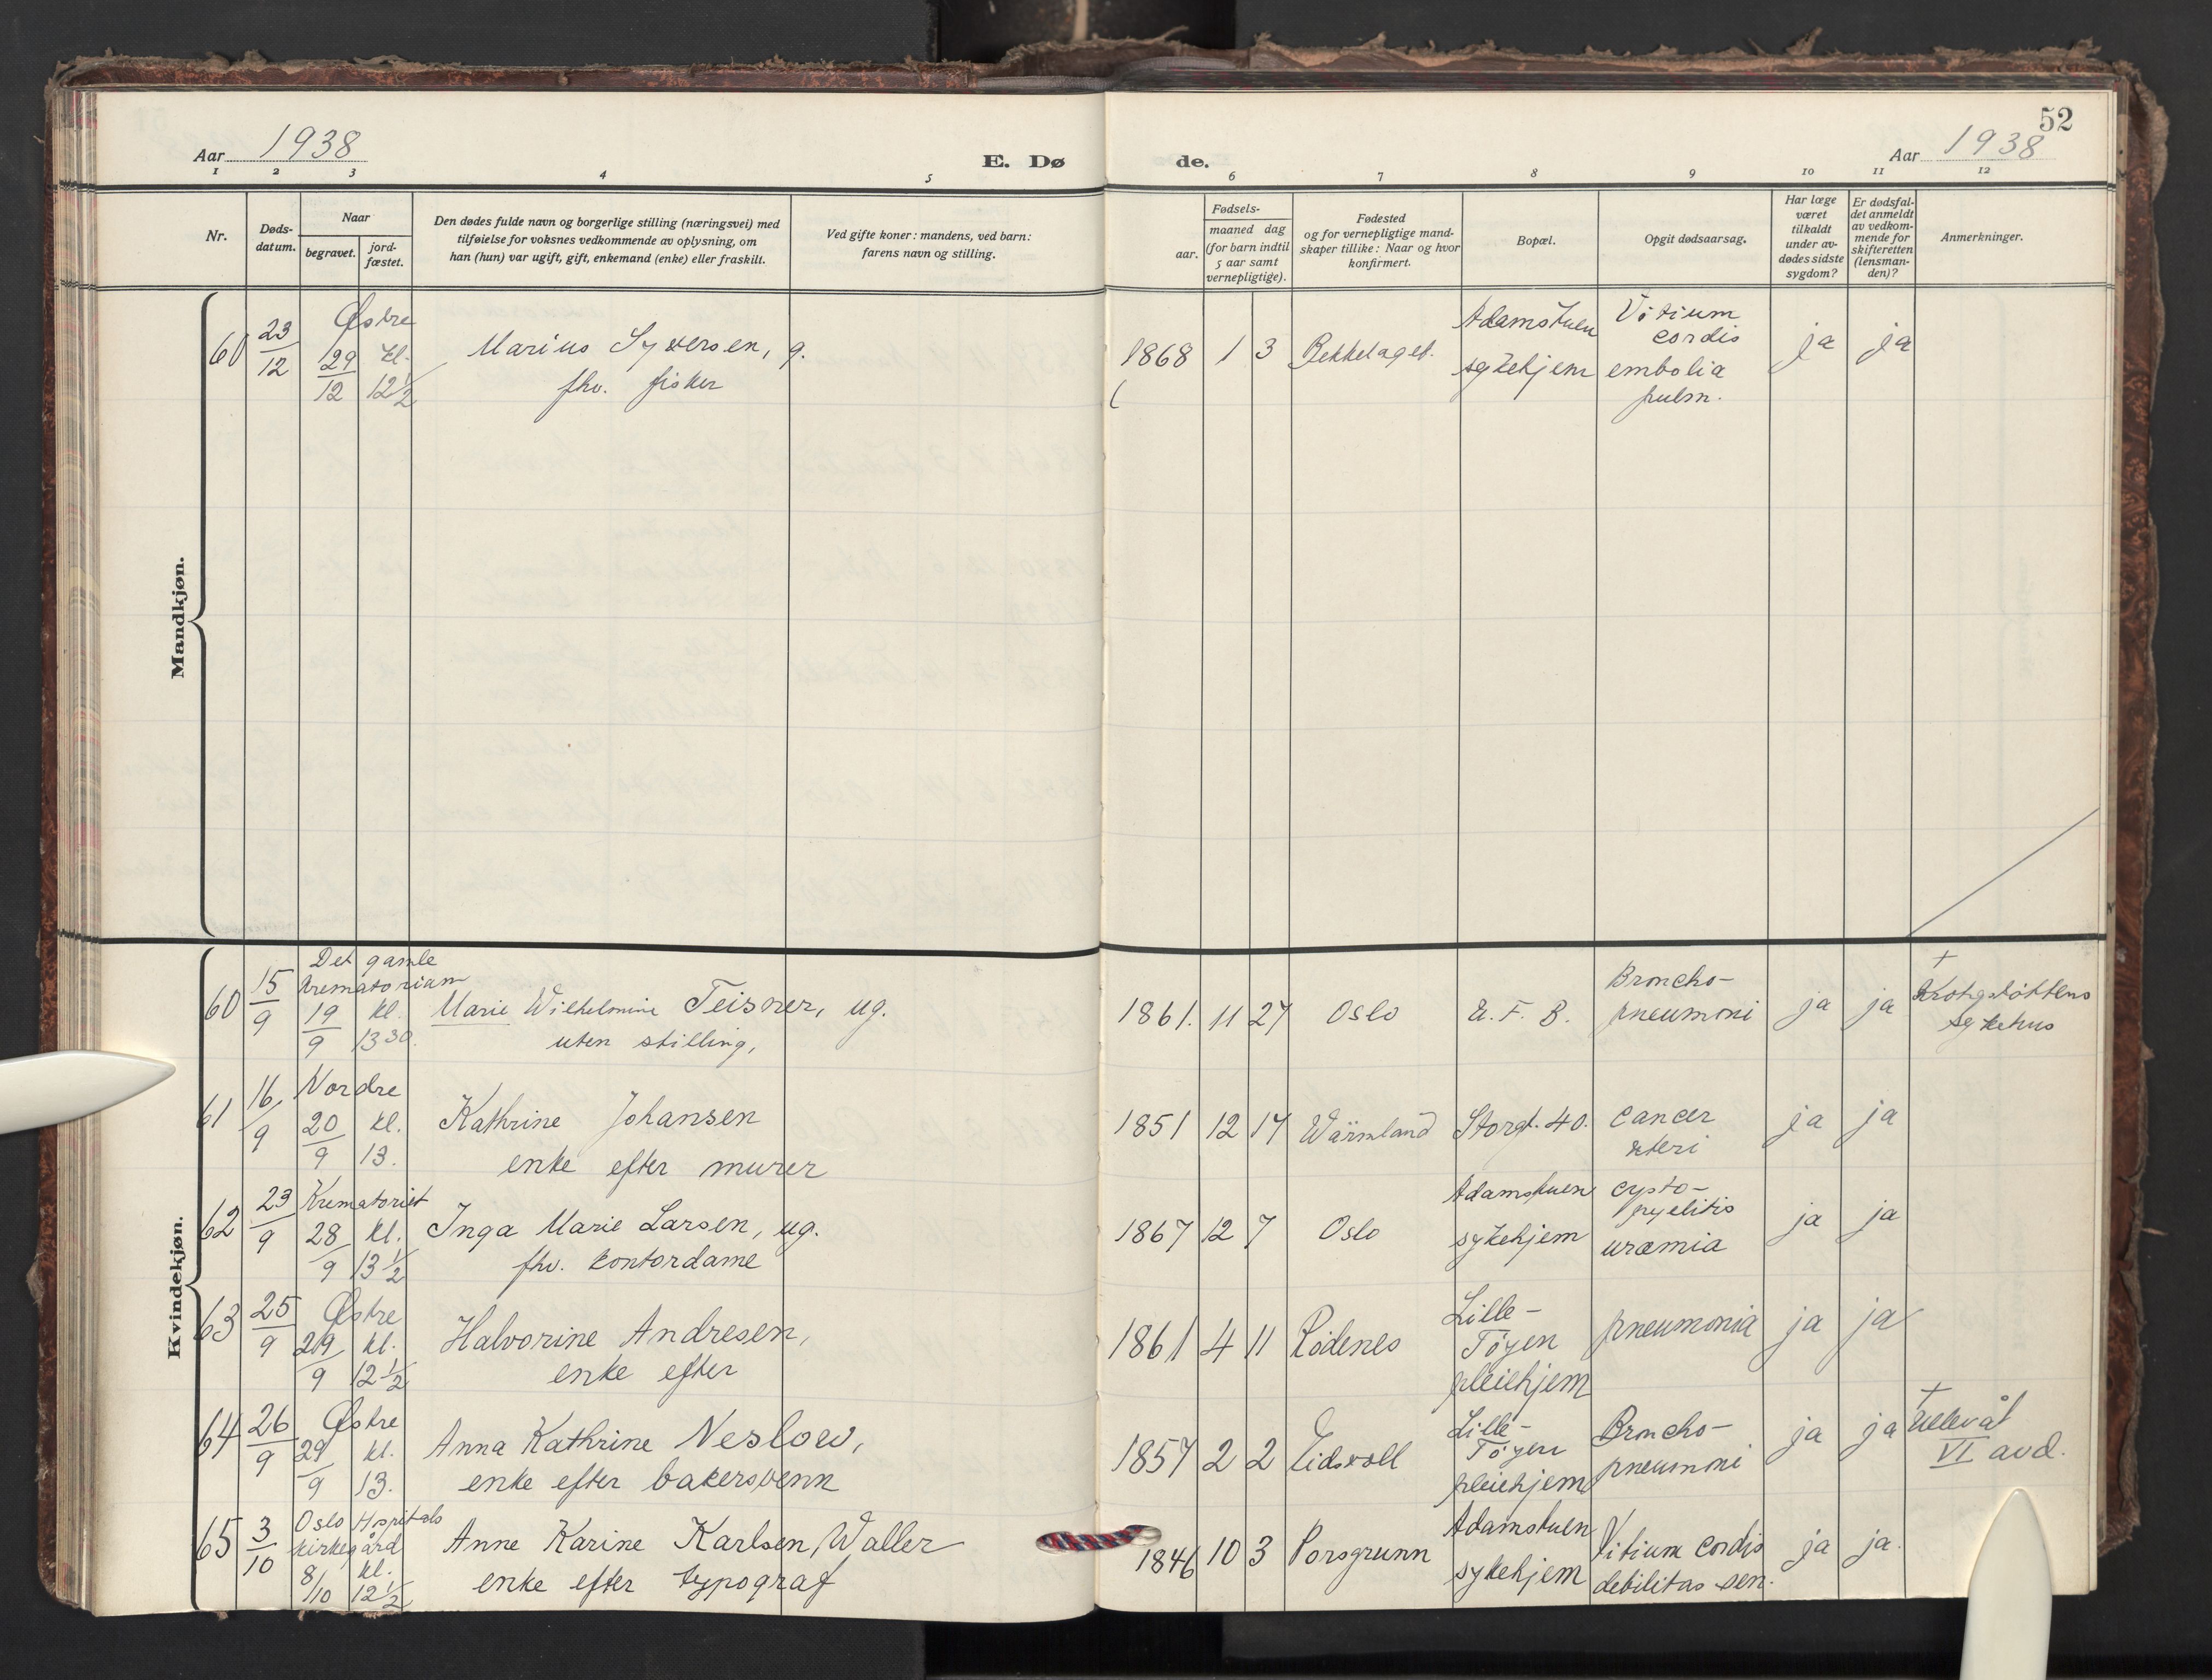 52
Aar 1938
E. Dø
de.
Aar 1938
1 2 3 4 5 6 7 8 9 10 11 12
Nr.
Døds-
datum.
Naar
begravet.
jord-
fæstet.
Den dødes fulde navn og borgerlige stilling (næringsvei) med
tilføielse for voksnes vedkommende av oplysning, om
han (hun) var ugift, gift, enkemand (enke) eller fraskilt.
Ved gifte koner: mandens, ved barn:
farens navn og stilling.
Fødsels-
aar.
maaned dag
(for barn indtil
5 aar samt
vernepligtige).
Fødested
og for vernepligtige mand-
skaper tillike: Naar og hvor
konfirmert.
Bopæl.
Opgit dødsaarsag.
Har læge
været
tilkaldt
under av-
dødes sidste
sygdom?
Er dødsfal-
det anmeldt
av vedkom-
mende for
skifteretten
(lensman-
den)?
Anmerkninger.
Mandkjøn.
60
23/12
Østre
29/12
kl.
12 1/2
Marius Syversen, g.
fhv. fisker
1868 1 3 Bekkelaget.
Adamstuen
sykehjem
Vitium
cordis
embolia
pulm.
ja ja
Kvindekjøn.
60
15/9
Det gamle
krematorium
19/9
kl.
13 30.
Marie Wilhelmine Teisner, ug.
uten stilling,
1861. 11 27 Oslo
U. F. B.
Broncho-
pneumoni
ja ja
+
Krohgstøttens
sykehus
61
16/9
Nordre
20/9
kl.
13.
Kathrine Johansen
enke efter murer
1851 12 17 Wärmland Storgt. 40.
cancer
uteri
ja ja
62
23/9
Krematoriet
28/9
kl.
13 1/2
Inga Marie Larsen, ug.
fhv. kontordame
1867 12 7 Oslo
Adamstuen
sykehjem
cysto-
pyelitis
uræmia
ja ja
63
25/9
Østre
29/9
kl.
12 1/2
Halvorine Andresen,
enke efter
1861 4 11 Rødenes
Lille-
Tøyen
pleiehjem
pneumonia
ja ja
64
26/9
Østre
29/9
kl.
13.
Anna Kathrine Neslow,
enke efter bakersvenn
1857 2 2 Eidsvoll
Lille-
Tøyen
pleiehjem
Broncho-
pneumoni
ja ja
+
Ullevål
VI avd.
65
3/10
Oslo Hospitals
kirkegård
8/10
kl.
12 1/2
Anne Karine Karlsen, Waller
enke efter typograf
1846 10 3 Porsgrunn
Adamstuen
sykehjem
Vitium cordis
debilitas sen.
ja ja.